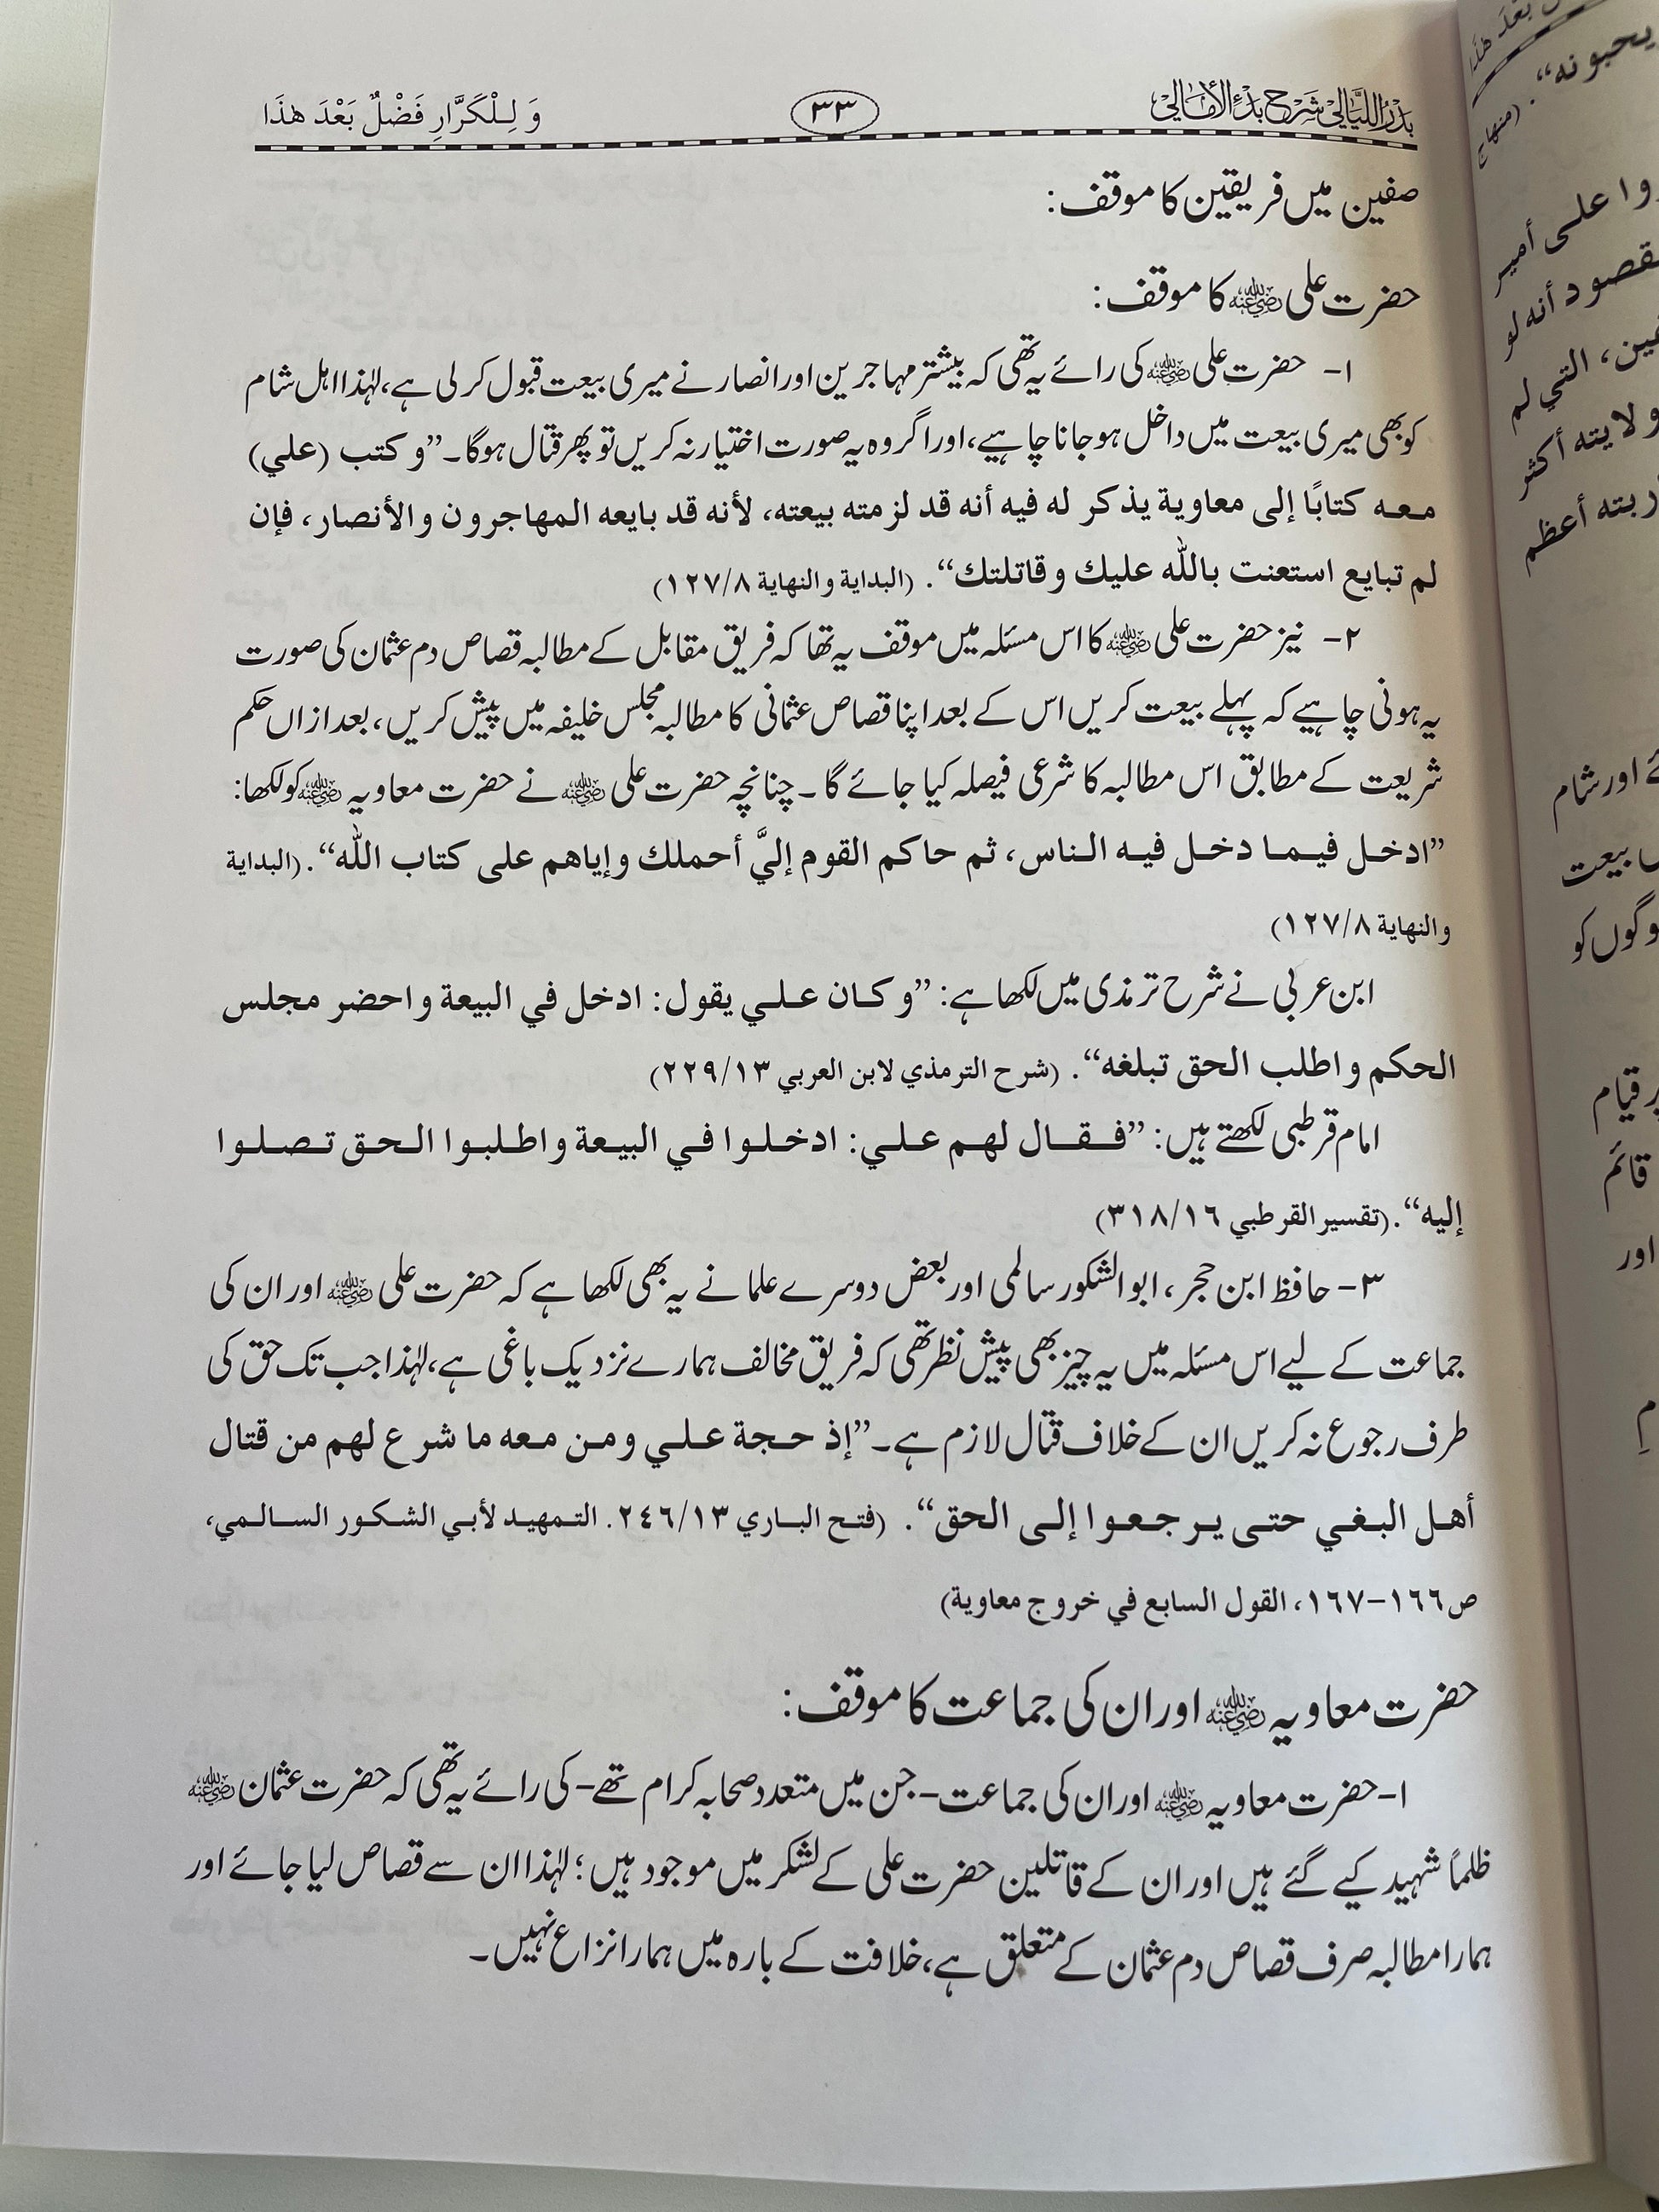 بَدْرُ اللَّيَالِي شَرْح بَدْءِ الأَمَالِي
٣٣
وَ لِلْكَرَّارِ فَضْلٌ بَعْدَ هٰذَا
صفین میں فریقین کا موقف:
حضرت علی رضي الله عنه کا موقف:
۱- حضرت علی رضي الله عنه کی رائے یہ تھی کہ بیشتر مہاجرین اور انصار نے میری بیعت قبول کر لی ہے، لہٰذا اہل شام
کو بھی میری بیعت میں داخل ہو جانا چاہیے، اور اگر وہ یہ صورت اختیار نہ کریں تو پھر قتال ہوگا۔ ”و کتب (علي)
معه كتابًا إلى معاوية يذكر له فيه أنه قد لزمته بيعته، لأنه قد بايعه المهاجرون والأنصار، فإن
لم تبايع استعنت بالله عليك وقاتلتك“. (البداية والنهاية ١٢٧/٨)
۲- نیز حضرت علی رضي الله عنه کا اس مسئلہ میں موقف یہ تھا کہ فریق مقابل کے مطالبہ قصاص دم عثمان کی صورت
یہ ہونی چاہیے کہ پہلے بیعت کریں اس کے بعد اپنا قصاص عثمانی کا مطالبہ مجلس خلیفہ میں پیش کریں، بعد ازاں حکم
شریعت کے مطابق اس مطالبہ کا شرعی فیصلہ کیا جائے گا۔ چنانچہ حضرت علی رضي الله عنه نے حضرت معاویہ رضي الله عنه کو لکھا:
”ادخل فيما دخل فيه الناس، ثم حاكم القوم إليَّ أحملك وإياهم على كتاب الله“. (البداية
والنهاية ١٢٧/٨)
ابن عربی نے شرح ترمذی میں لکھا ہے: ”وكان علي يقول: ادخل في البيعة واحضر مجلس
الحكم واطلب الحق تبلغه“. (شرح الترمذي لابن العربي ٢٢٩/١٣)
امام قرطبی لکھتے ہیں: ”فقال لهم علي: ادخلوا في البيعة واطلبوا الحق تصلوا
إليه“. (تفسير القرطبي ٣١٨/١٦)
۳- حافظ ابن حجر، ابوالشکور سالمی اور بعض دوسرے علما نے یہ بھی لکھا ہے کہ حضرت علی رضي الله عنه اور ان کی
جماعت کے لیے اس مسئلہ میں یہ چیز بھی پیش نظر تھی کہ فریق مخالف ہمارے نزدیک باغی ہے، لہٰذا جب تک حق کی
طرف رجوع نہ کریں ان کے خلاف قتال لازم ہے۔ ”إذ حجة علي ومن معه ما شرع لهم من قتال
أهل البغي حتى يرجعوا إلى الحق“. (فتح الباري ٢٤٦/١٣. التمهيد لأبي الشكور السالمي،
ص١٦٦-١٦٧، القول السابع في خروج معاوية)
حضرت معاویہ رضي الله عنه اور ان کی جماعت کا موقف:
۱- حضرت معاویہ رضي الله عنه اور ان کی جماعت- جن میں متعدد صحابہ کرام تھے- کی رائے یہ تھی کہ حضرت عثمان رضي الله عنه
ظلماً شہید کیے گئے ہیں اور ان کے قاتلین حضرت علی کے لشکر میں موجود ہیں؛ لہٰذا ان سے قصاص لیا جائے اور
ہمارا مطالبہ صرف قصاص دم عثمان کے متعلق ہے، خلافت کے بارہ میں ہمارا نزاع نہیں۔
يحبونه“. (منهاج
علی أمير
أنه لو
التي لم
ولايته أكثر
أعظم
اور شام
بیعت
قیام
قائم
اور